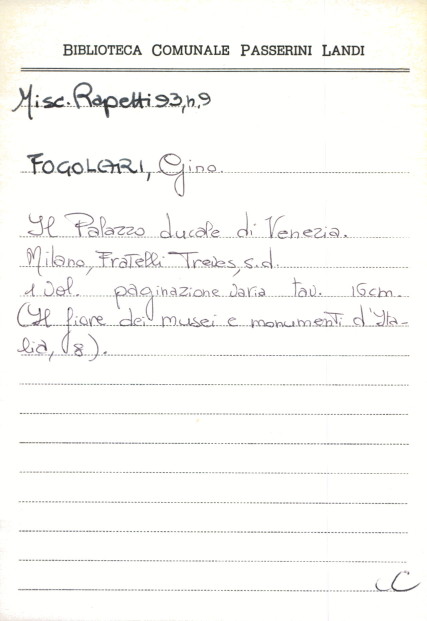 BIBLIOTECA COMUNALE PASSERINI LANDI
Misc. Rapetti 93, n. 9
FOGOLARI, Gino.
Il Palazzo ducale di Venezia.
Milano, Fratelli Treves, s.d.
1 vol. paginazione varia tav. 16cm.
(Il fiore dei musei e monumenti d'Ita-
lia, 8).
C